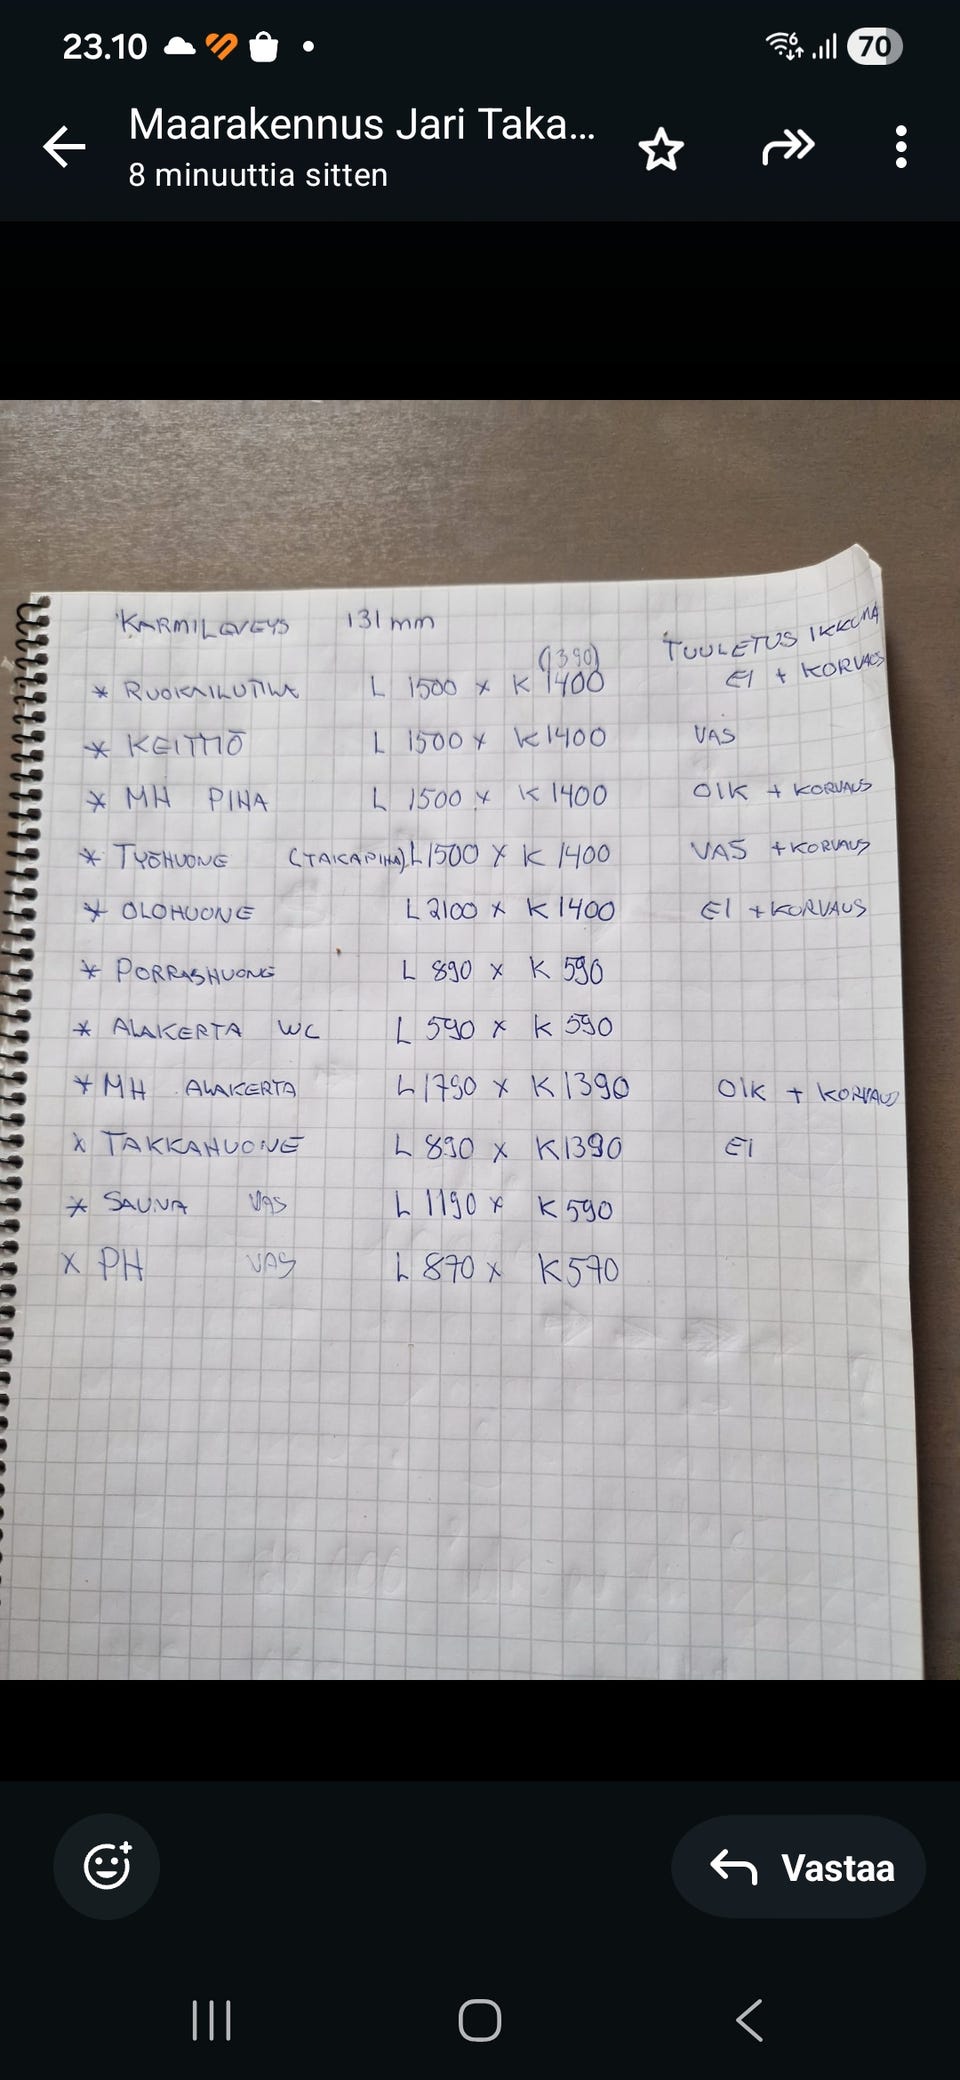 23.10
70
Maarakennus Jari Taka...
8 minuuttia sitten
KARMILEVEYS 131 mm TUULETUS IKKUNA
(1390)
* RUOKAILUTILA L 1500 x K 1400 EI + KORVAUS
* KEITTIÖ L 1500 x K 1400 VAS
* MH PIHA L 1500 x K 1400 OIK + KORVAUS
* TYÖHUONE (TAKAPIHA) L 1500 x K 1400 VAS + KORVAUS
* OLOHUONE L 2100 x K 1400 EI + KORVAUS
* PORRASHUONE L 890 x K 590
* ALAKERTA WC L 590 x K 590
* MH ALAKERTA L 1790 x K 1390 OIK + KORVAUS
x TAKKAHUONE L 890 x K 1390 EI
* SAUNA VAS L 1190 x K 590
x PH VAS L 870 x K 570
Vastaa